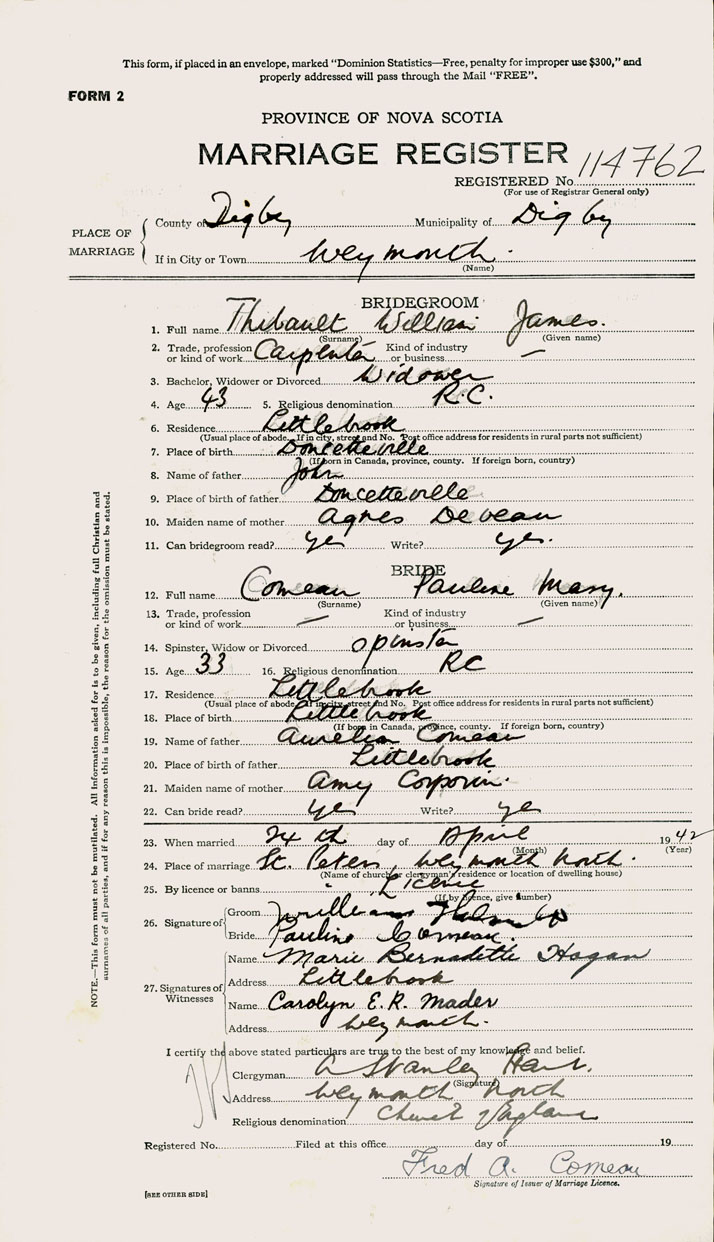 This form, if placed in an envelope, marked "Dominion Statistics—Free, penalty for improper use $300," and
properly addressed will pass through the Mail "FREE".
FORM 2
PROVINCE OF NOVA SCOTIA
MARRIAGE REGISTER
REGISTERED No. 114762
(For use of Registrar General only)
PLACE OF MARRIAGE
County of Digby Municipality of Digby
If in City or Town Weymouth.
(Name)
BRIDEGROOM
1. Full name Thibault William James.
(Surname) (Given name)
2. Trade, profession or kind of work Carpenter Kind of industry or business —
3. Bachelor, Widower or Divorced Widower
4. Age 43 5. Religious denomination R.C.
6. Residence Littlebrook
(Usual place of abode. If in city, street and No. Post office address for residents in rural parts not sufficient)
7. Place of birth Doucetteville
(If born in Canada, province, county. If foreign born, country)
8. Name of father John
9. Place of birth of father Doucetteville
10. Maiden name of mother Agnes Deveau
11. Can bridegroom read? yes Write? yes.
BRIDE
12. Full name Comeau Pauline Mary.
(Surname) (Given name)
13. Trade, profession or kind of work — Kind of industry or business —
14. Spinster, Widow or Divorced Spinster
15. Age 33 16. Religious denomination RC
17. Residence Littlebrook
(Usual place of abode. If in city, street and No. Post office address for residents in rural parts not sufficient)
18. Place of birth Littlebrook
(If born in Canada, province, county. If foreign born, country)
19. Name of father Aurelien Comeau
20. Place of birth of father Littlebrook
21. Maiden name of mother Amy
22. Can bride read? yes Write? yes
23. When married 24th day of April 1942
(Month) (Year)
24. Place of marriage St. Peters, Weymouth North.
(Name of church or clergyman's residence or location of dwelling house)
25. By licence or banns Licence
(If by licence, give number)
26. Signature of
Groom William
Bride Pauline Comeau.
27. Signatures of Witnesses
Name Marie Bernadette Hogan
Address Littlebrook
Name Carolyn E.R. Mader
Address Weymouth.
I certify the above stated particulars are true to the best of my knowledge and belief.
Clergyman A Stanley
(Signature)
Address Weymouth North
Religious denomination Church England
Registered No. Filed at this office day of 19
Fred A. Comeau
Signature of Issuer of Marriage Licence.
[SEE OTHER SIDE]
NOTE.—This form must not be mutilated. All Information asked for is to be given, including full Christian and
surnames of all parties, and if for any reason this is impossible, the reason for the omission must be stated.